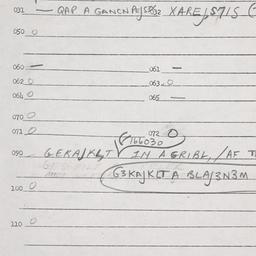 031 — QAP A GANCN
050 0
060 — 061 —
062 0 063 0
064 0 065 —
070 0
071 0 072 0
166030
090 GEKAJKLT IN A GRIBL, /AF
G3KAJKLTA BLAJ3N3M
100 0
110 0